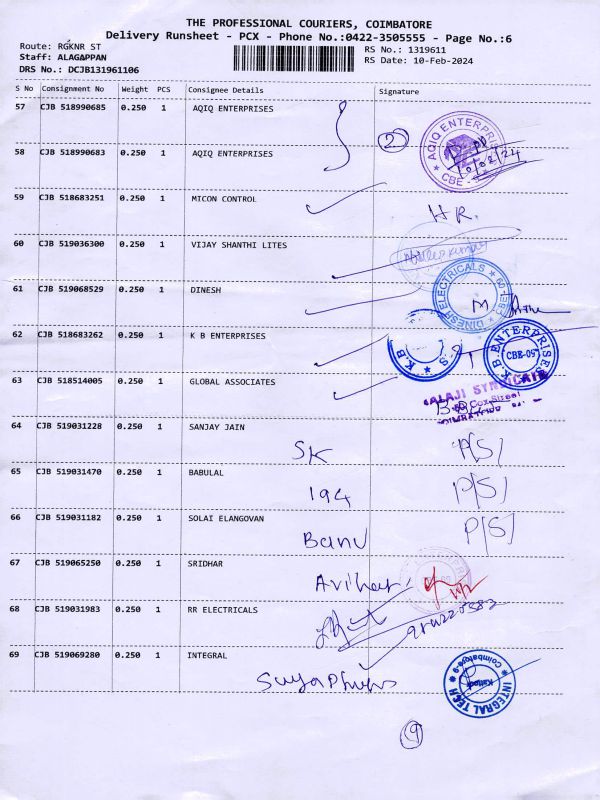 THE PROFESSIONAL COURIERS, COIMBATORE
Delivery Runsheet - PCX - Phone No.:0422-3505555 - Page No.:6
Route: RGKNR ST
RS No.: 1319611
Staff: ALAGAPPAN
RS Date: 10-Feb-2024
DRS No.: DCJB131961106
S No Consignment No Weight PCS Consignee Details Signature
57 CJB 518990685 0.250 1 AQIQ ENTERPRISES
2
AQIQ ENTERPRI
CBE
58 CJB 518990683 0.250 1 AQIQ ENTERPRISES
59 CJB 518683251 0.250 1 MICON CONTROL
HR.
60 CJB 519036300 0.250 1 VIJAY SHANTHI LITES
61 CJB 519068529 0.250 1 DINESH
DINESH ELECTRICALS
M
62 CJB 518683262 0.250 1 K B ENTERPRISES
K.B S
K.B. ENTERPRISES
CBE-09
63 CJB 518514005 0.250 1 GLOBAL ASSOCIATES
ALAJI SYNDICATE
64 CJB 519031228 0.250 1 SANJAY JAIN
SK
P[S]
65 CJB 519031470 0.250 1 BABULAL
194
P[S]
66 CJB 519031182 0.250 1 SOLAI ELANGOVAN
Banu
P[S]
67 CJB 519065250 0.250 1 SRIDHAR
68 CJB 519031983 0.250 1 RR ELECTRICALS
69 CJB 519069280 0.250 1 INTEGRAL
INTEGRAL TECH
Coimbatore-9
9